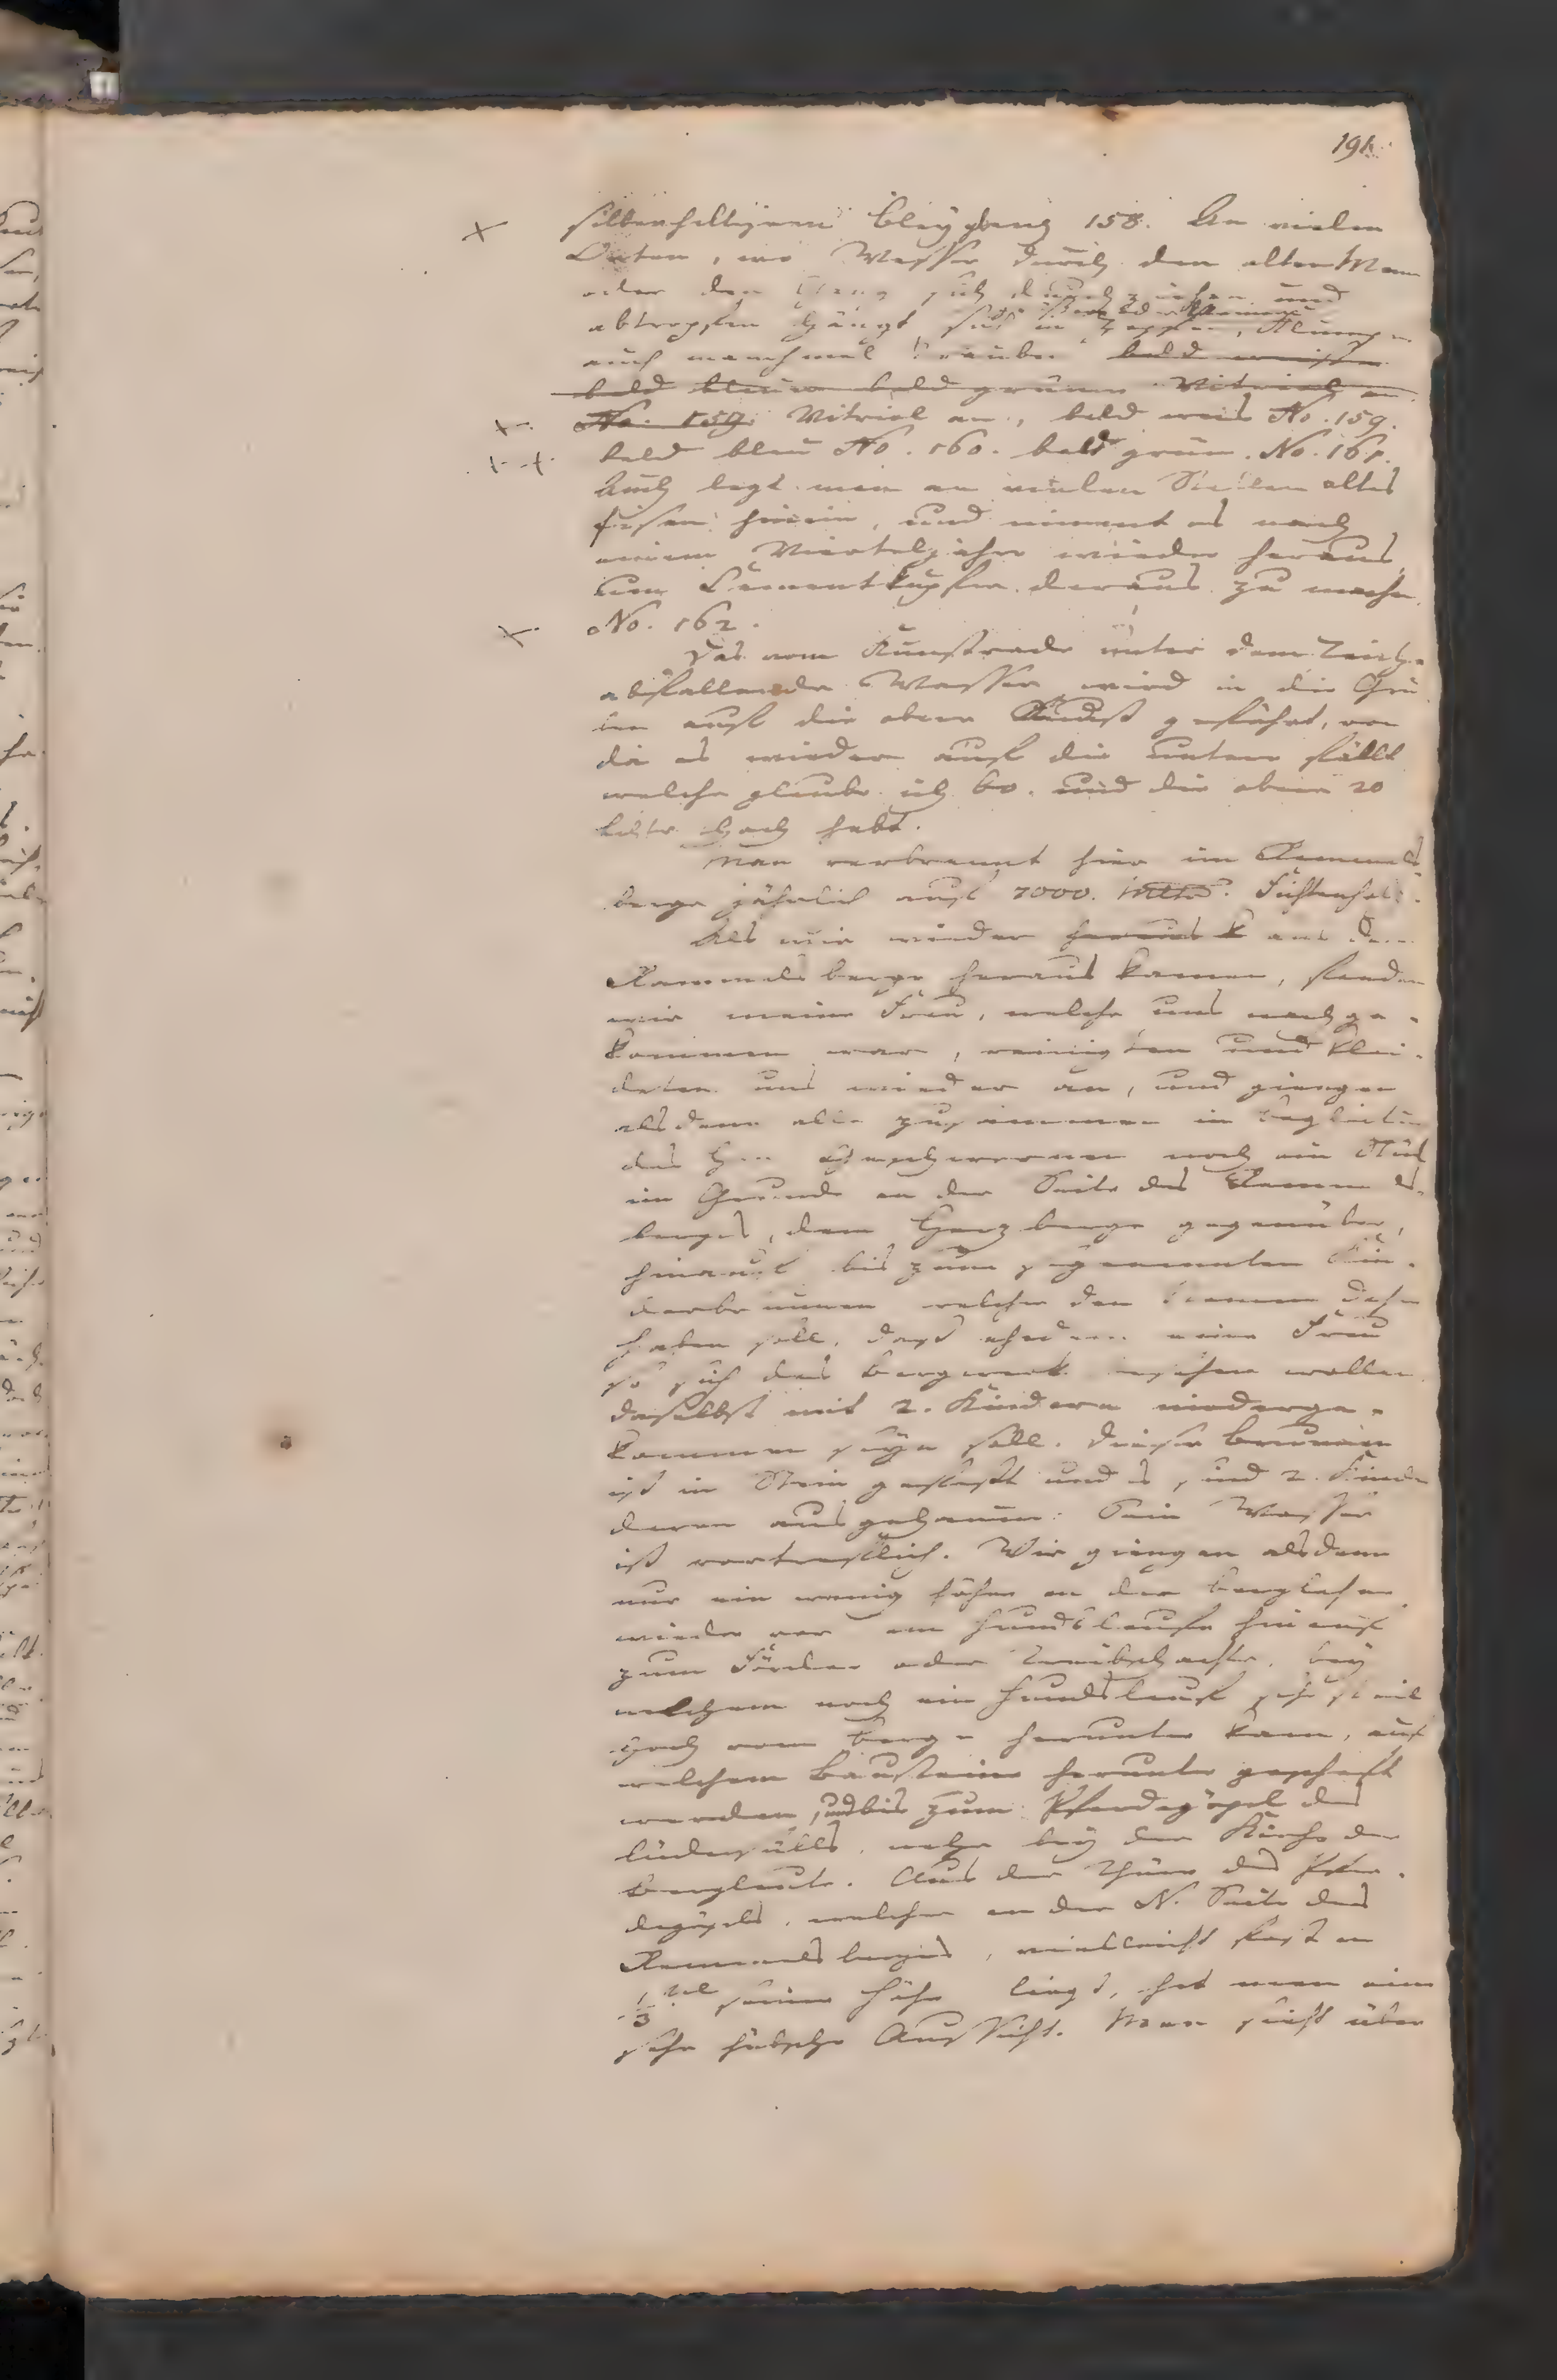 191
silberhaltigem Bleyglanz 158. An vielen
Orten, wo Wasser durch den alten Mann
oder den Gang sich durchziehen und
abtropfen hängt sich in Zapfen, Klumpen
auch manchmal Trauben bald weisser
bald blauer bald grüner Vitriol an
No. 159. Vitriol an, bald weis No. 159.
bald blau No. 160. bald grün. No. 161.
Auch legt man an vielen Stellen altes
Eisen hinein, und nimmt es nach
einem Vierteljahre wieder heraus,
um Cementkupfer daraus zu machen.
No. 162.
Das vom Kunstrade unter dem Teiche
abfallende Wasser wird in die Gru
ben auf die obere Kunst geführt, von
da es wieder auf die untere fällt
welche glaube ich 60. und die obere 20
Lachter hoch hebt.
Man verbrennt hier im Rammels
berge jährlich auf 7000. Fichtenholz.
Als wir wieder heraus k aus dem
Rammelsberge heraus kamen, fanden
wir meine Frau, welche uns nachge-
kommen war, reinigten und klei-
deten uns wieder an, und giengen
alsdenn alle zusammen in Begleitung
des H. Geschwornen noch ein Stük
im Grunde an der Seite des Rammels-
berges, dem Herzberge gegenüber,
hinauf bis zum sogenannten Kin-
derbrunnen welcher den Namen daher
haben soll, dass ehedem eine Frau
so sich das Bergwerk besehen wollen
daselbst mit 2. Kindern niederge-
kommen seyn soll. Dieser Brunnen
ist in Stein gefasst und es sind 2. Kinder
daran ausgehauen: Sein Wasser
ist vortreflich. Wir giengen alsdenn
nur ein wenig höher an der Berglehne
wieder vor am Hundslaufe hinauf
zum Förder oder Treibschachte, bey
welchem noch ein Hundslauf sehr steil
hoch vom Berge herunter kam, auf
welchem Bausteine herunter geschaft
werden, und bis zum Pferdegöpel des
Lüdersülls, nahe bey der Kirche der
Bergleute. Aus der Thüre des Pfer-
degöpels, welcher an der N. Seite des
Rammelsberges, vielleicht fast an
1/3 tel seiner Höhe liegt, hat man eine
sehr hübsche Aussicht. Man sieht über